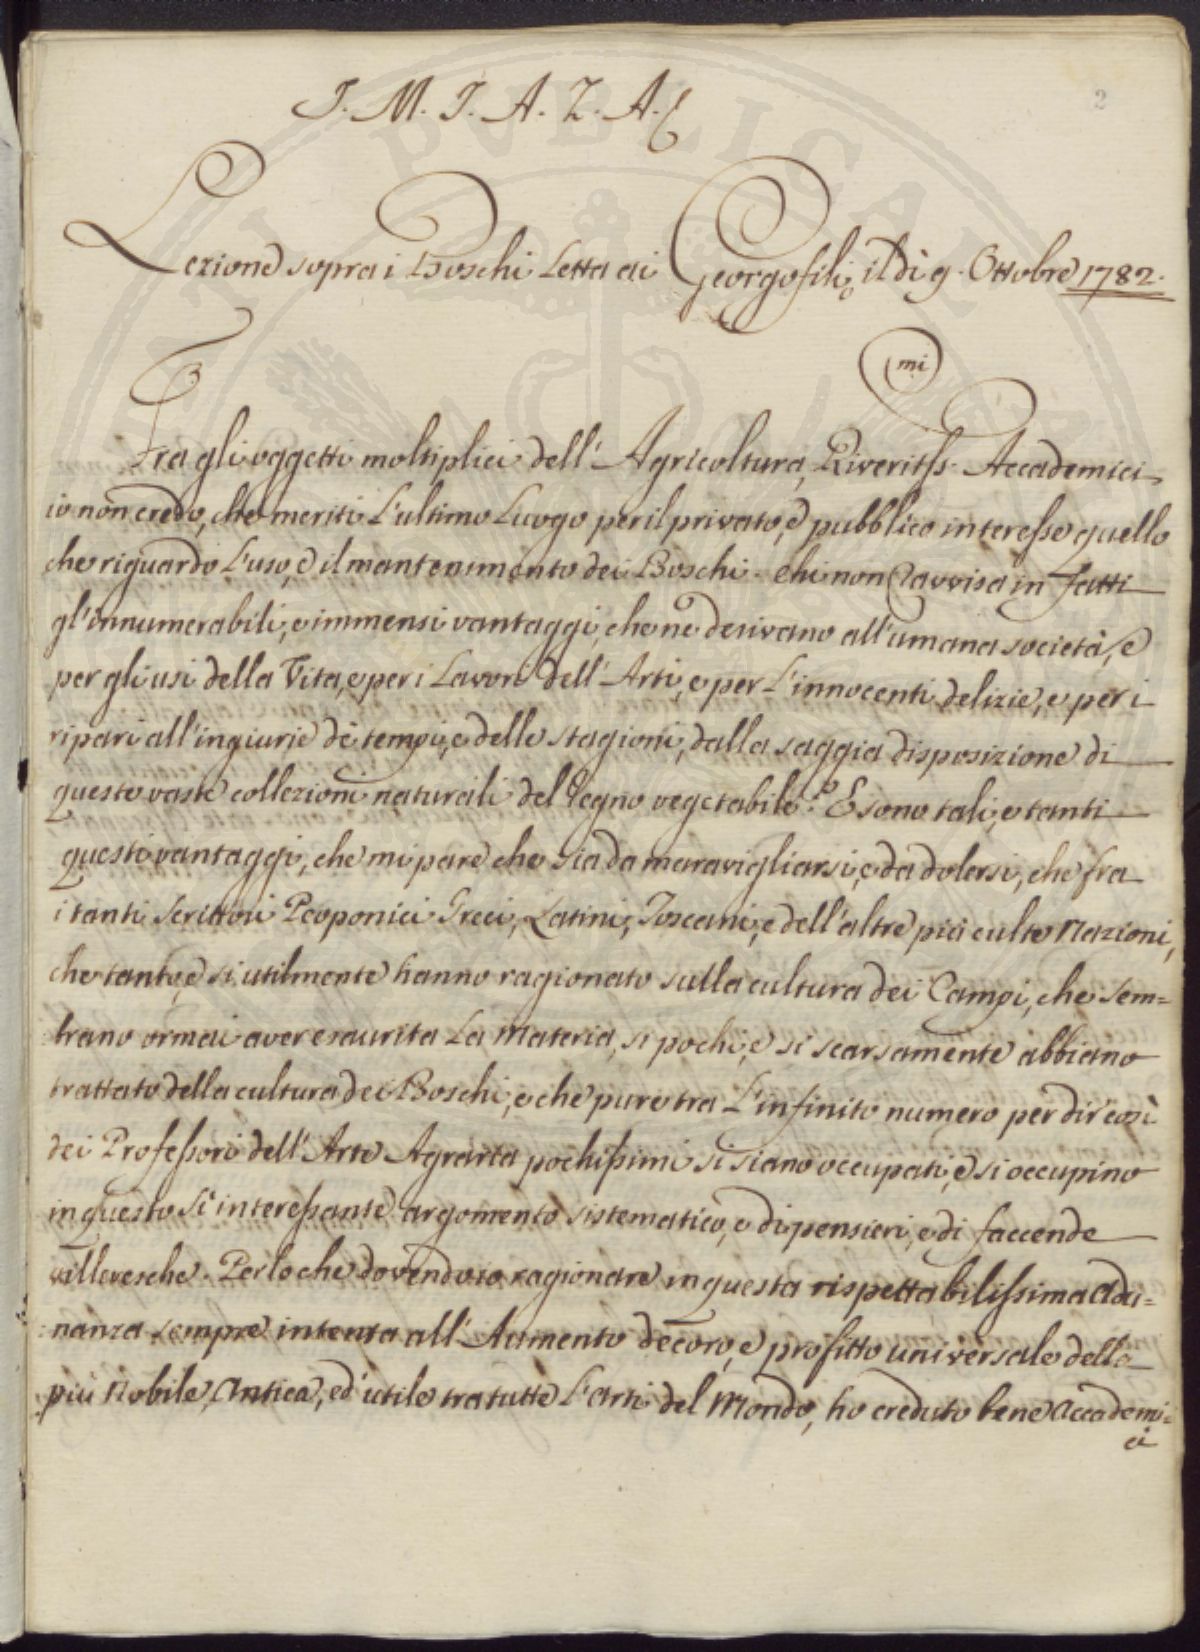 2
J. M. J. A. Z. A.
Lezione sopra i Boschi Letta ai Georgofili il dì 9. Ottobre 1782.
Fra gli oggetti moltiplici dell' Agricoltura, Riveritiss.mi Accademici
io non credo, che meriti L'ultimo Luogo per il privato, e pubblico interesse quello
che riguarda L'uso, e il mantenimento dei Boschi. Chi non ravvisa in fatti
gl'innumerabili, e immensi vantaggi, che ne derivano all'umana società, e
per gli usi della Vita, e per i Lavori dell' Arti, e per L'innocenti delizie, e per i
ripari all'ingiurie de tempi, e delle stagioni, dalla saggia disposizione di
queste vaste collezioni naturali del Regno vegetabile? E sono tali, e tanti
questi vantaggi, che mi pare che sia da maravigliarsi, e da dolersi, che fra
i tanti Scrittori Peoponici Greci, Latini, Toscani, e dell'altre più culte Nazioni,
che tanto, e sì utilmente hanno ragionato sulla cultura dei Campi, che sem=
brano ormai aver esaurita La Materia, sì pochi, e sì scarsamente abbiano
trattato della cultura dei Boschi, e che pure tra L'infinito numero per dir così
dei Professori dell' Arte Agraria pochissimi si siano occupati, e si occupino
in questo sì interessante argomento sistematico, e di pensieri, e di faccende
villeresche. Perloche dovendo io ragionare in questa rispettabilissima adu=
nanza sempre intenta all' Aumento decoro, e profitto universale della
più Nobile, Antica, ed utile tra tutte L'arti del Mondo, ho creduto bene Accademi=
ci
PUBLICA